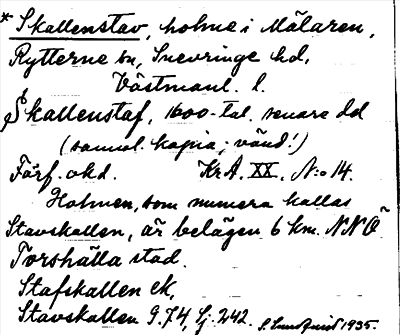 * Skallenstav, holme i Mälaren,
Rytterne sn, Snevringe hd,
Västmanl. l.
Skallenstaf, 1600-tal. senare dd
(samml. kopia; vänd!)
Förf. okd. KrA. XX. N:o 14.
Holmen, som numera kallas
Stavskallen, är belägen 6 km. NNÖ
Torshälla stad.
Stafskallen ek,
Stavskallen G.74, Sj. 242. S. Lundquist 1935.